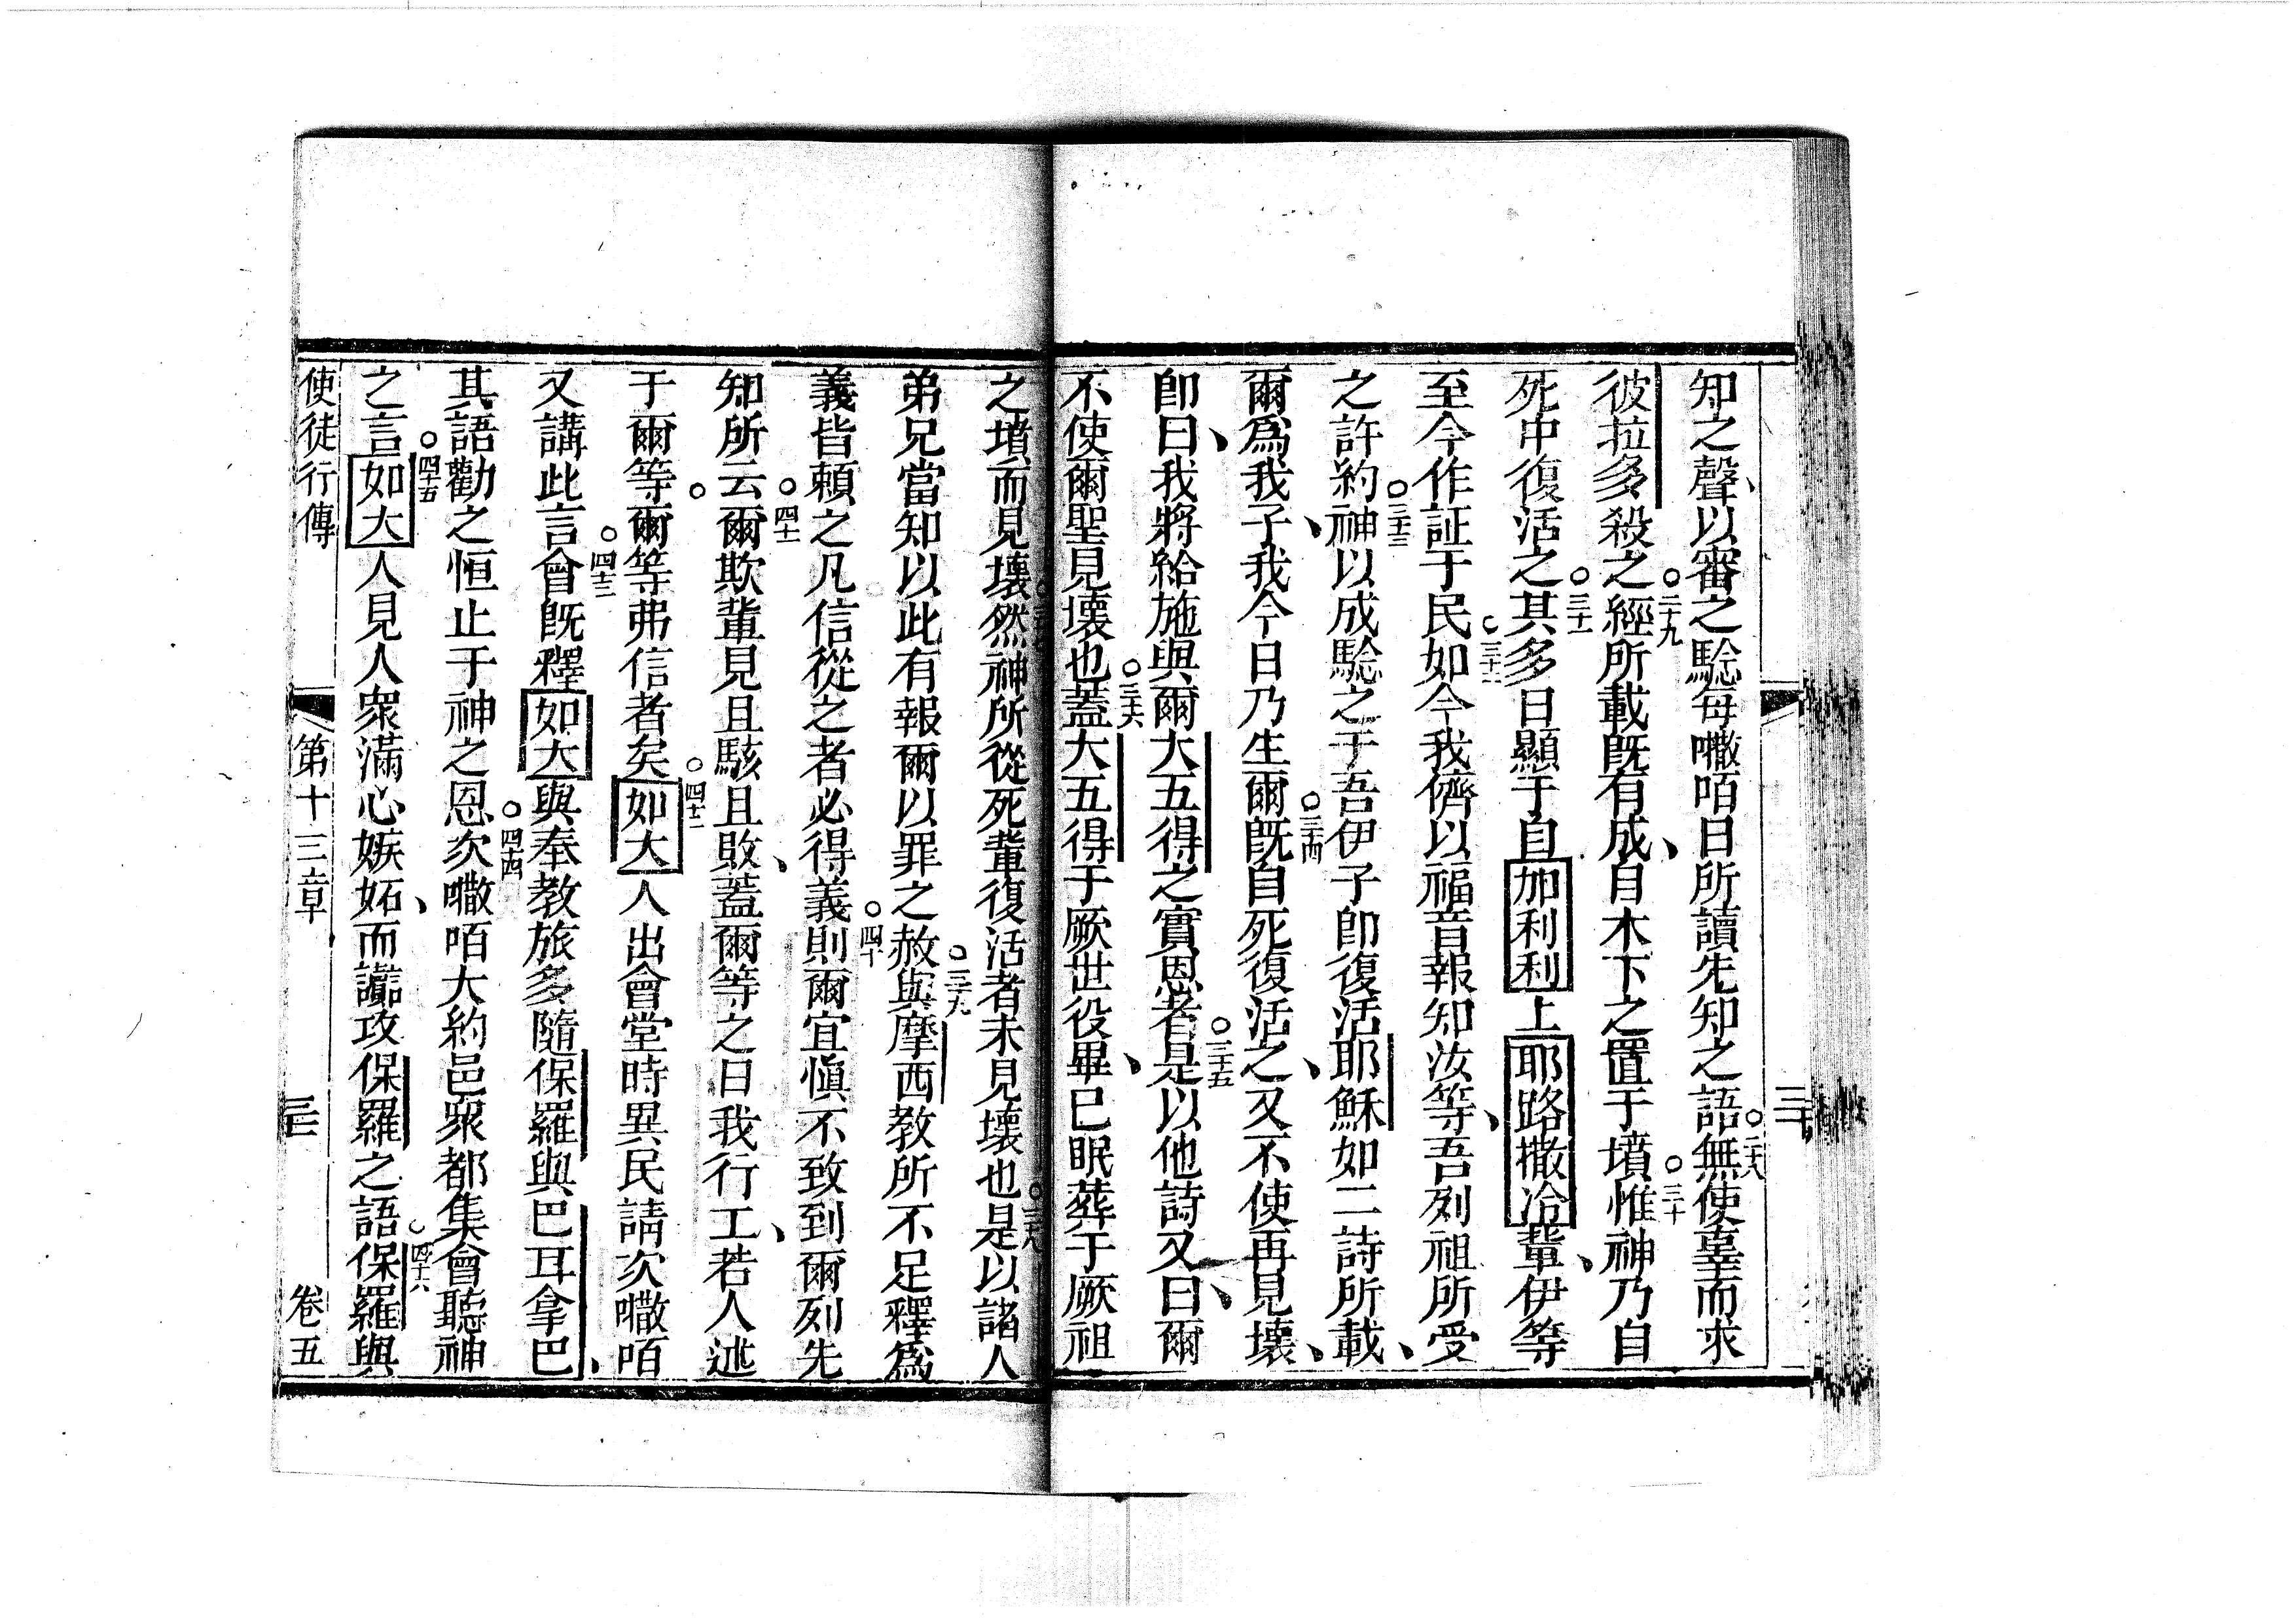 知之聲、以審之騐每𠾐咟日所讀先知之語○二十八無使辜而求
彼拉多殺之○二十九經所載既有成、自木下之置于墳○三十惟神乃自
死中復活之○三十一其多日顯于自加利利上耶路撒冷輩、伊等
至今作証于民○三十二如今我儕以福音報知汝等、吾列祖所受
之許約○三十三神以成騐之于吾伊子卽復活耶穌如二詩所載、
爾爲我子、我今日乃生爾○三十四既自死復活之、又不使再見壞、
卽曰、我將給施與爾大五得之實恩者○三十五是以他詩又曰、爾
不使爾聖見壞也○三十六蓋大五得于厥世役畢、已眠葬于厥祖
之墳而見壞○三十七然神所從死輩復活者未見壞也○三十八是以諸人
弟兄當知以此有報爾以罪之赦○三十九與摩西教所不足釋爲
義皆賴之凡信從之者必得義○四十則爾宜愼不致到爾列先
知所云○四十一爾欺輩見且駭且敗、蓋爾等之日我行工、若人述
于爾等○爾等弗信者矣○四十二如大人出會堂時異民請次𠾐咟
又講此言○四十三會既釋如大與奉教旅多隨保羅與巴耳拿巴、
其語勸之恒止于神之恩○四十四次𠾐咟大約邑衆都集會聽神
之言○四十五如大人見人衆滿心嫉妬、而讒攻保羅之語○四十六保羅與
使徒行傳 第十三章 三十 卷五